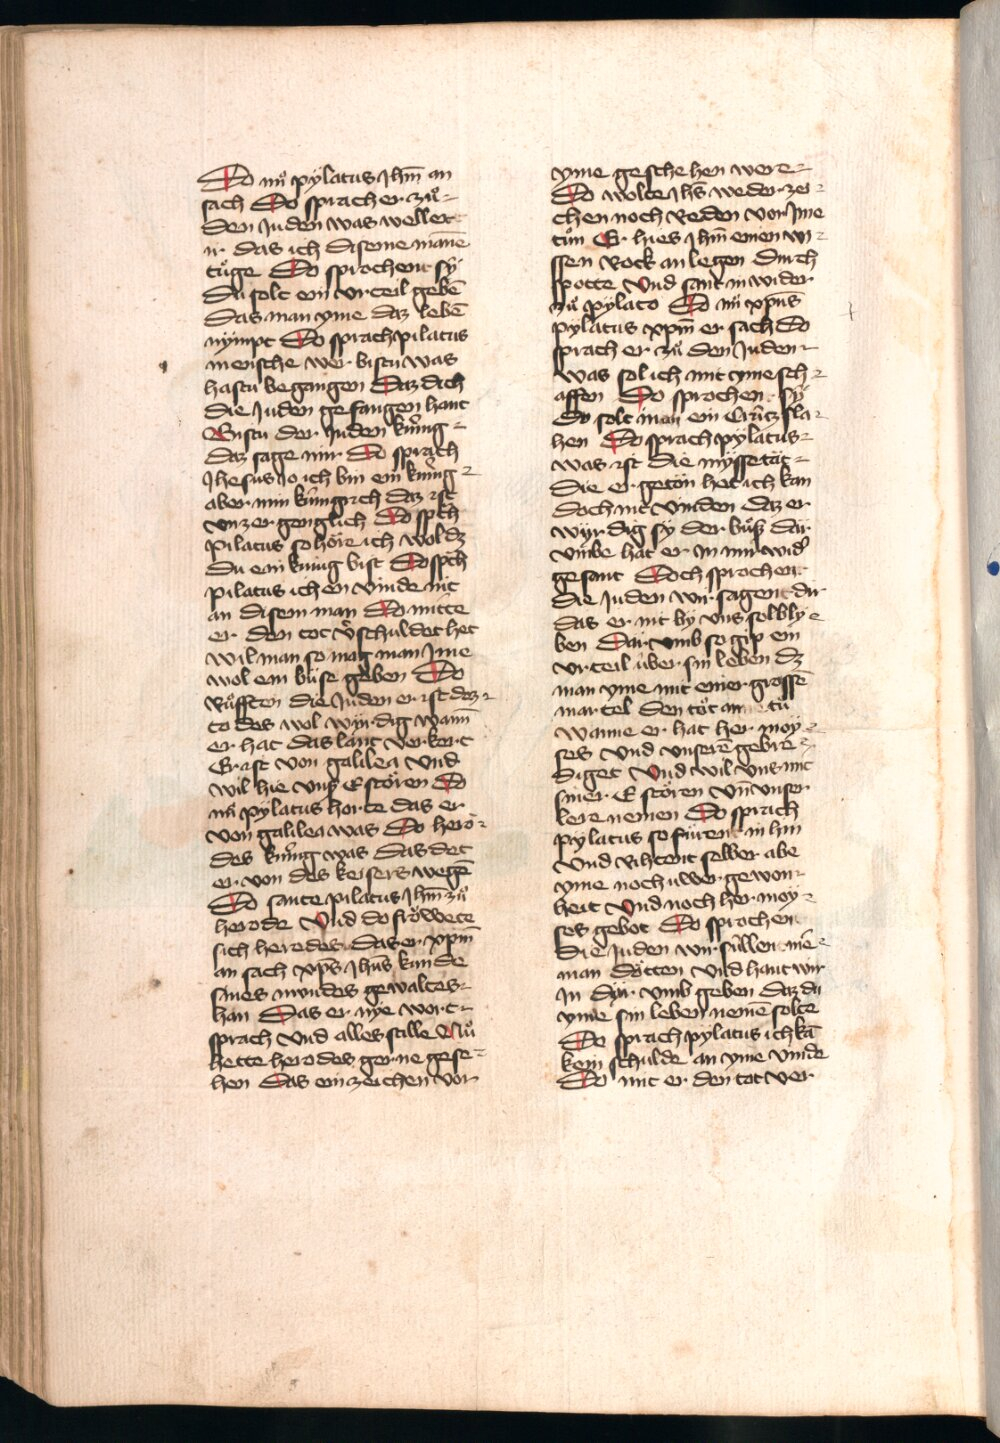 Do nuͦ pÿlatus Jhm̄ an
sach Do sprach er zuͦ
den Juden was wellent
ir das ich diseme manē
tuͤge Do sprochent sÿ
Du solt ein vrteil gebē
Das man yme daz lebē
nympt Do sprach pilatus
mensche wer bistu was
hastu begangen Daz dich
die Juden gefangen hant
Bistu der Juden kuͥnig
daz sage mir Do sprach
Jhesus Jo ich bin ein kuͥnig
aber min kuͥnigrich daz ist
vnzergenglich Do sp̄ch
Pilatus so hoͤre ich wol dz
du ein kuͥnig bist Do sp̄ch
pilatus ich en vinde nit
an disem man Do mitte
er den tot v̄schuldet het
wil man so mag man Jme
wol ein buͤse geben Do
Ruͦfften die Juden er ist daz
todes wol wÿrdig wann̄
er hat das lant verkert
Er ist von galilea Vnd
wil hie vnß E stoͤren Do
nuͦ pÿlatus horte das er
von galilea was Do hero
des kuͥnig was Das det
er von des keisers wegē
Do sante pilatus Jhm̄ zuͦ
herode Vnd do froͤwete
sich herodes Das er xpm̄
an sach xp̄s Jhus kunde
sines mundes gewaltes
han Das er nÿe wort
sprach Vnd alles stille Nuͦ
hette herodes gerne gese
hen Das ein zeichen vor
yme geschehen were
Do wolte Jhs weder zei
chen noch Reden vor Jme
tuͦn Er hies Jhm̄ einen wi
ssen Rock an legen durch
spotte Vnd sant in wider
zuͦ pÿlato Do nuͦ xpūs
pÿlatus xpm̄ er sach Do
sprach er zuͦ den Juden
was sol ich mit yme sch
affen Do sprochen sÿ
Do solt man ein Cruͥtz sla
hen Do sprach pÿlatus
was ist die mÿssetat
Die er geton het ich kan
doch nit vinden daz er
wÿrdig sy der buͦß dar
vmbe hat er In mir wid̓
gesant Doch sprochen
die Juden wir sagent dir
das er nit by vns sol bly
ben Dar vmb so gip ein
vrteil uͥber sin leben dz
man yme mit einer grossē
martel den tot an tuͦ
wanne er hat her moy
ses Vnd vnsere gebre
diget Vnd wil vns mit
siner E stoͤren vn̄ vnser
lere nemen Do sprach
Pylatus so fuͥrent in hin
Vnd Rihtent selber abe
yme noch uwer gewon
heit Vnd noch her moy
ses gebot Do sprochen
die Juden wir suͥllen nie
man doͤtten Vnd hant wir
In dar vmb geben Daz du
yme sin leben nemē solte
Do sprach pÿlatus ich kā
kein schulde an yme vinde
Do mit er den tot ver